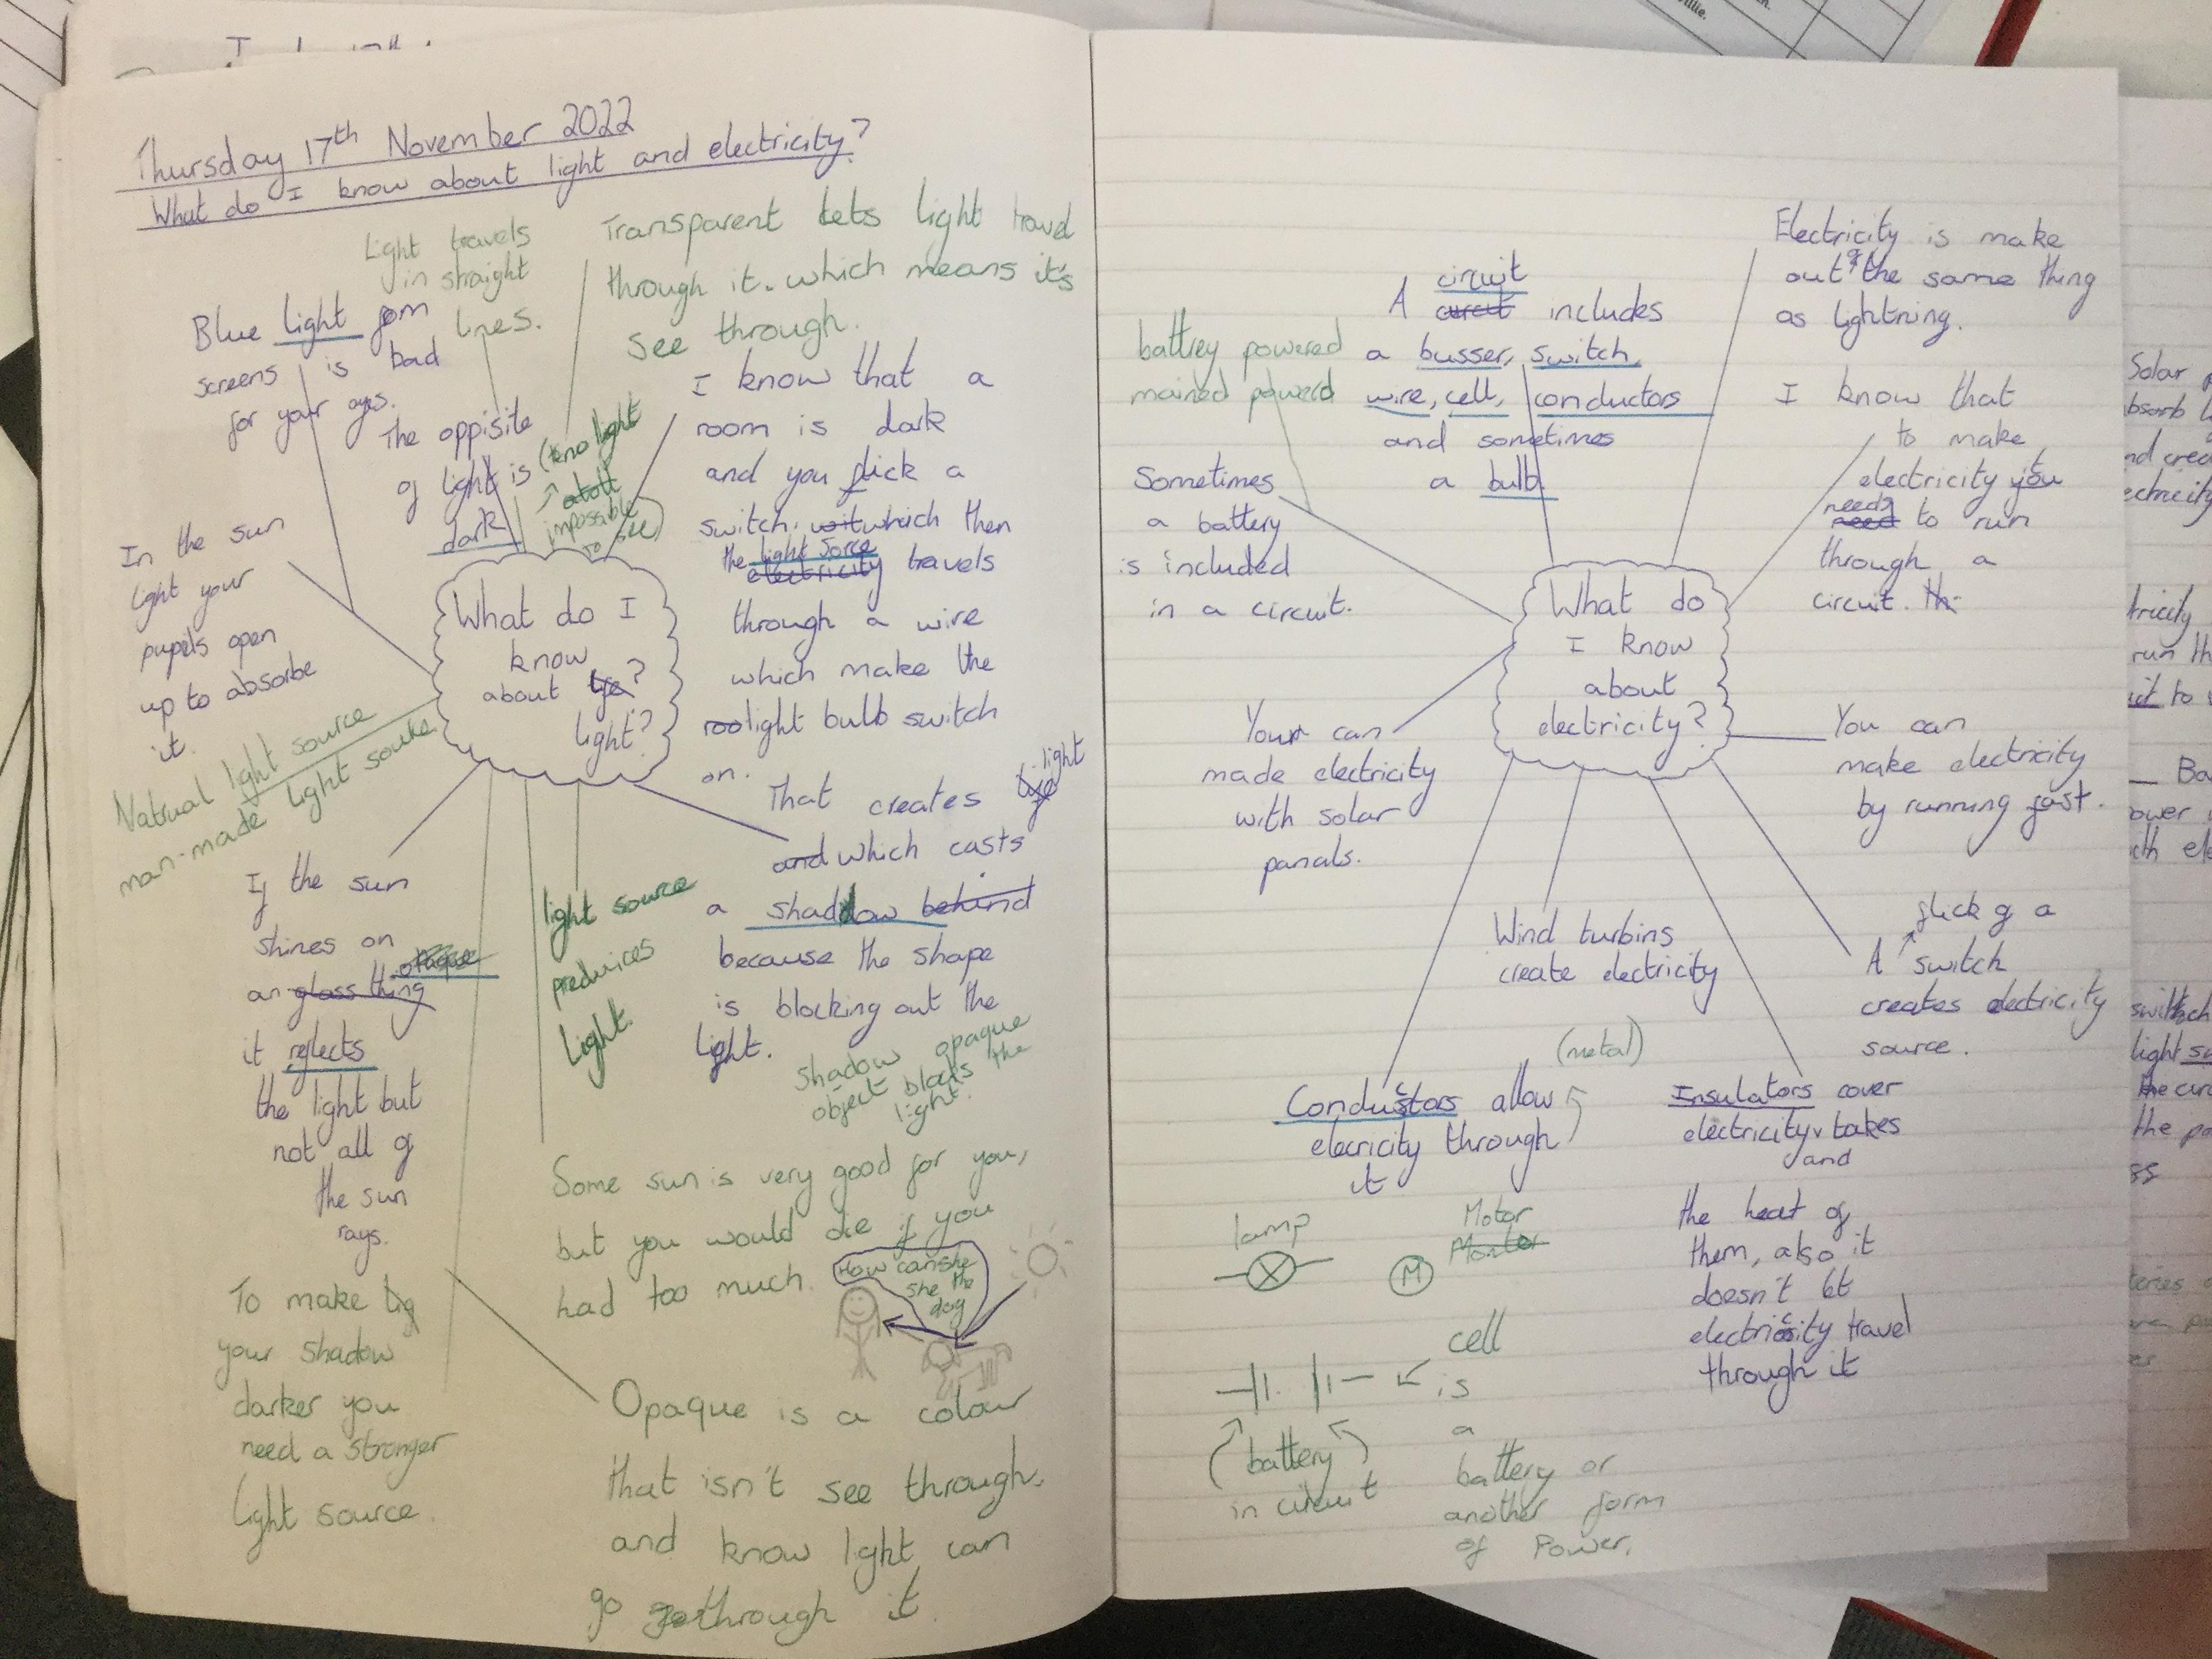 Thursday 17th November 2022
What do I know about light and electricity?
Light travels
in straight
lines.
Transparent lets light travel
through it. which means it's
see through.
Blue light from
screens is bad
for your eyes.
The oppisite
of light is
dark
(no light
impossible
to see)
I know that a
room is dark
and you flick a
switch. which then
the light sorce
electricity travels
through a wire
which make the
light bulb switch
on.
In the sun
light your
pupils open
up to absorbe
it.
What do I
know
about life?
light?
Natrual light source
man-made light source
That creates light
and which casts
a shaddow behind
because the shape
is blocking out the
light.
shadow opaque
object blocks the
light.
If the sun
shines on
an glass thing opaque
it reflects
the light but
not all of
the sun
rays.
light source
produices
light.
Some sun is very good for you,
but you would die if you
had too much.
How can she
she the
dog
To make lig
your shadow
darker you
need a stronger
light source.
Opaque is a colour
that isn't see through.
and know light can
go through it.
battrey powered
mained powerd
circuit
A curcit includes
a busser, switch,
wire, cell, conductors
and sometimes
a bulb
Electricity is make
out of the same thing
as lightning.
Sometimes
a battery
is included
in a circuit.
I know that
to make
electricity you
needs
need to run
through a
circuit. th
What do
I know
about
electricity?
Your can
made electricity
with solar
panals.
You can
make electricity
by running fast.
Wind turbins
create electricity
flick of a
A switch
creates electricity
source.
(metal)
Conductors allow
elecricity through
it
Insulators cover
electricity takes
and
the heat of
them, also it
doesn't let
electricity travel
through it
lamp
Motor
Montor
M
cell
is
a
battery or
another form
of Power.
battery
in circuit
Solar